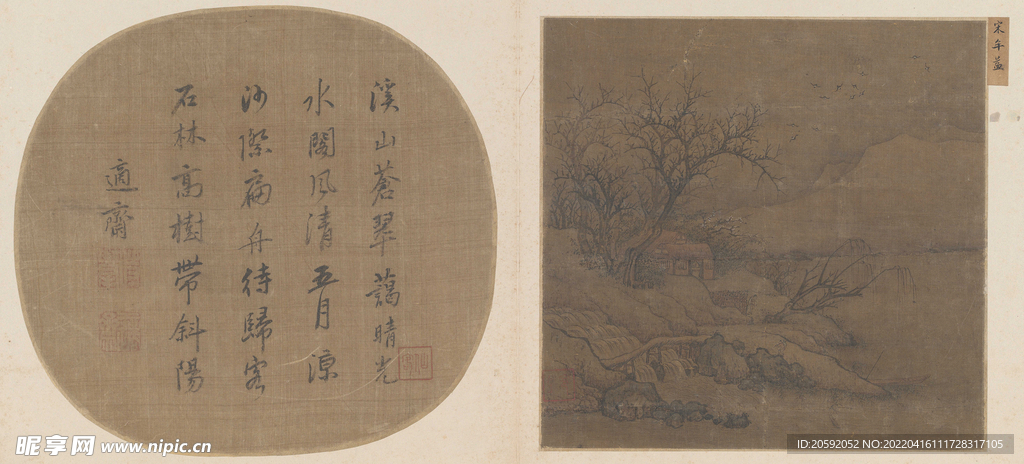 溪山蒼翠藹晴光
水閣風清五月涼
沙際扁舟待歸客
石林高樹帶斜陽
適齋
宋年益
昵享网 www.nipic.cn
ID:20592052 NO:20220416111728317105